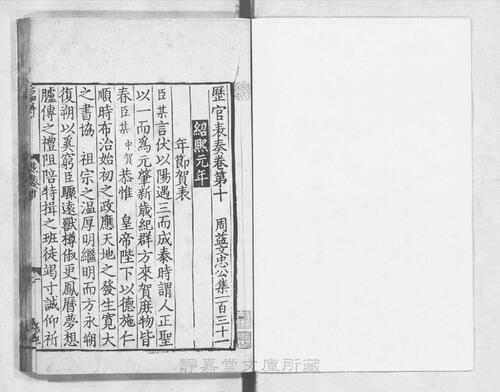 歷官表奏卷第十 周益文忠公集一百三十一
紹熙元年
年節賀表
臣某言伏以陽遇三而成泰時謂人正聖
以一而爲元肇新歲紀群方來賀庶物皆
春臣某中賀恭惟 皇帝陛下以德施仁
順時布治始初之政應天地之發生寬大
之書協 祖宗之温厚明繼明而方永朔
復朔以奚窮臣驟遠獸樽俶更鳳曆夢想
臚傳之禮阻陪特揖之班徒竭寸誠仰祈
靜嘉堂文庫所藏